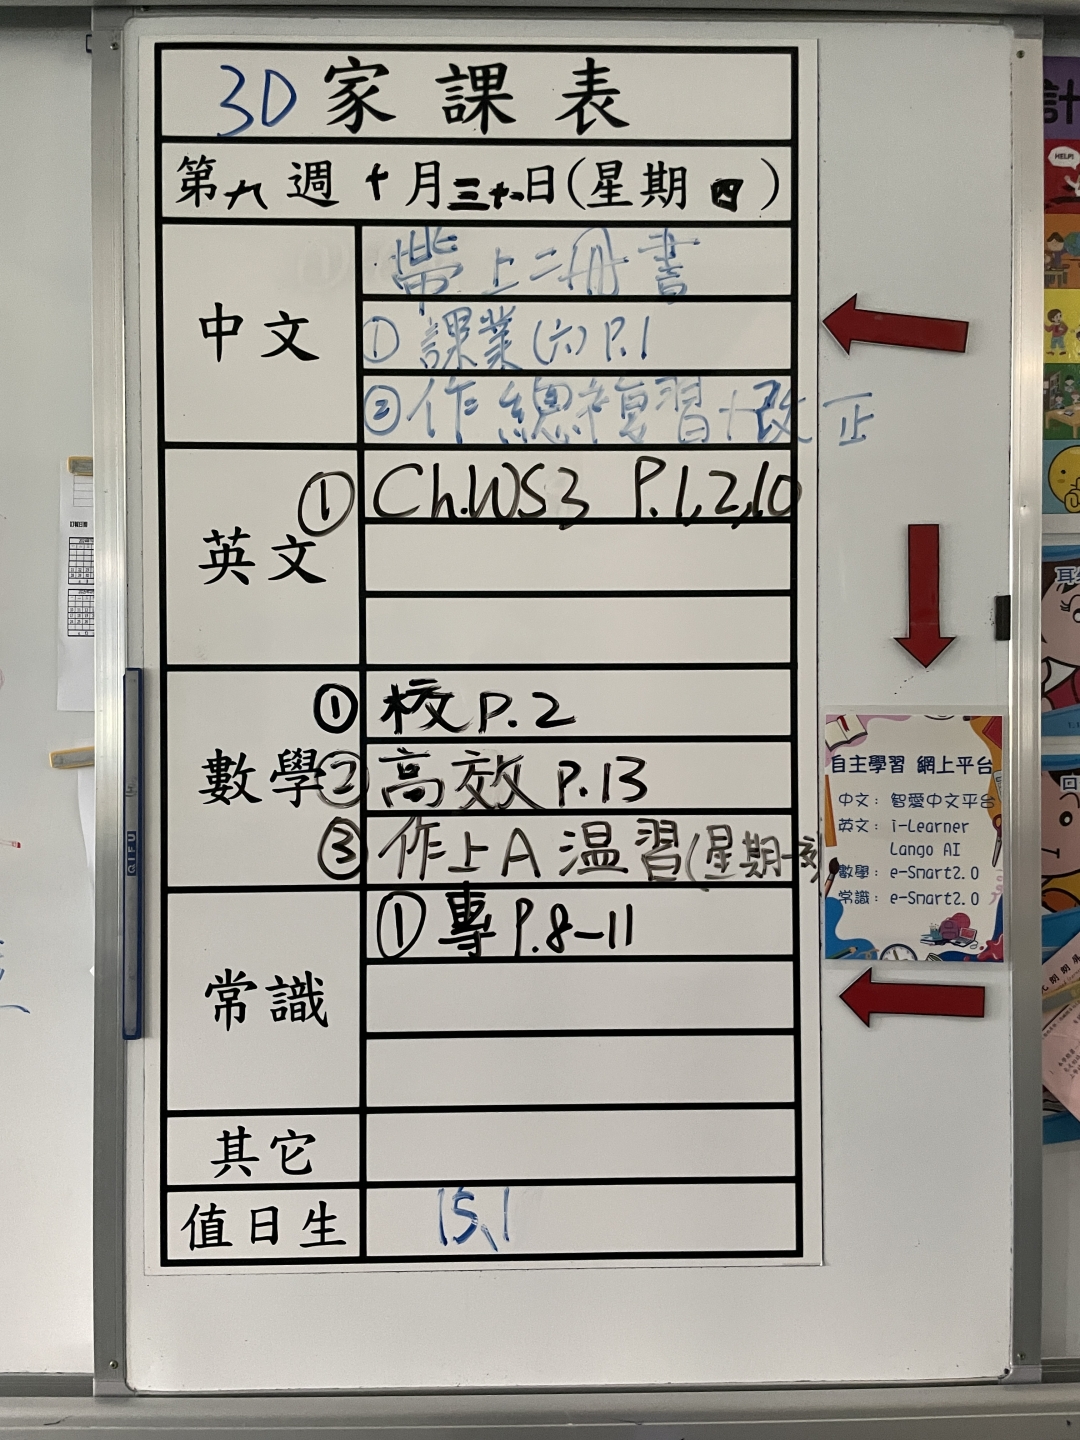 3D 家課表
第九週 十月三十一日(星期四)
中文
帶上二冊書
① 課業(六) P.1
② 作 總複習+改正
英文
① Ch.WS3 P.1,2,10
數學
① 校 P.2
② 高效 P.13
③ 作上A 温習(星期一
常識
① 專 P.8-11
其它
值日生
15、1
自主學習 網上平台
中文：智愛中文平台
英文：i-Learner
Lango AI
數學：e-Smart2.0
常識：e-Smart2.0
QIFU
計
HELP!
回